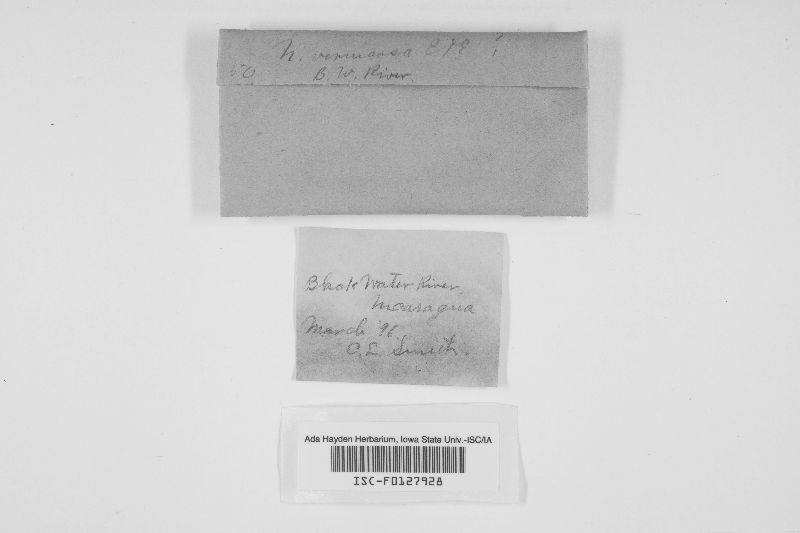 N. verrucosa E & E !
50 B. W. River.
Black Water River,
Nicaragua
March '96.
C. L. Smith.
Ada Hayden Herbarium, Iowa State Univ.-ISC/IA
ISC-F0127928